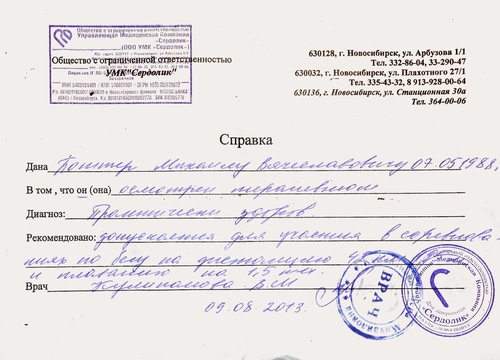 Общество с ограниченной ответственностью
Управляющая Медицинская Компания
«Сердолик»
(ООО УМК «Сердолик»)
Общество с ограниченной ответственностью
УМК"Сердолик"
630128, г. Новосибирск, ул. Арбузова 1/1
Тел. 332-86-04, 33-290-47
630032, г. Новосибирск, ул. Плахотного 27/1
Тел. 335-43-32, 8 913-928-00-64
630136, г. Новосибирск, ул. Станционная 30а
Тел. 364-00-06
Справка
Дана Михаилу Вячеславовичу 07.05 1988
В том , что он (она) осмотрен терапевтом
Диагноз: Практически здоров
Рекомендовано: допускается для участия в соревнова
ниях по бегу на дистанцию
и плаванию на 1,5 км.
Врач
09.08 2013.
ВРАЧ
Михайловна
«Сердолик»